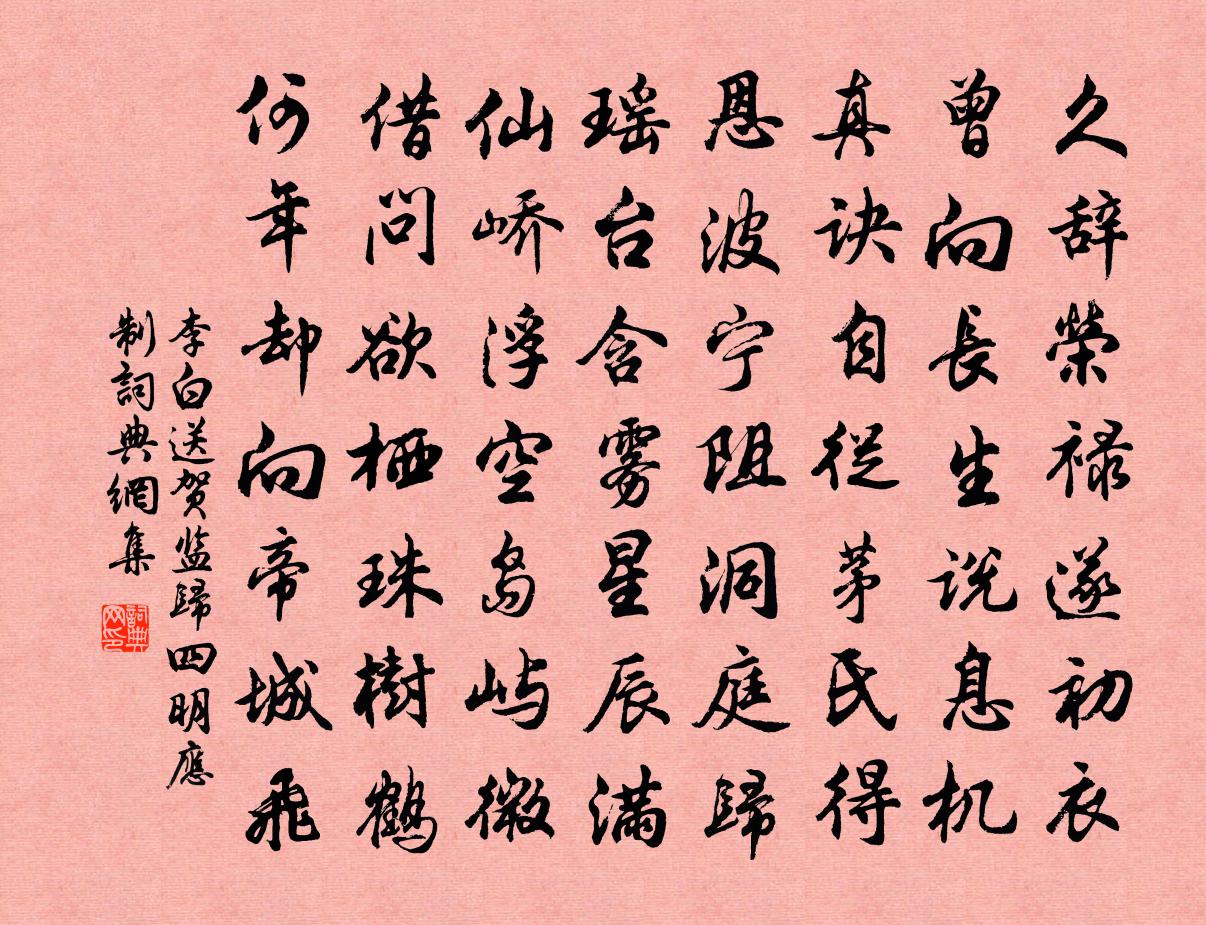 久辞榮禄遂初衣
曾向長生说息机
真诀自從茅氏得
恩波宁阻洞庭歸
瑶台含雾星辰满
仙峤浮空岛屿微
借问欲栖珠樹鹤
何年却向帝城飛
李白送贺监歸四明應
制詞典網集
詞典
网印